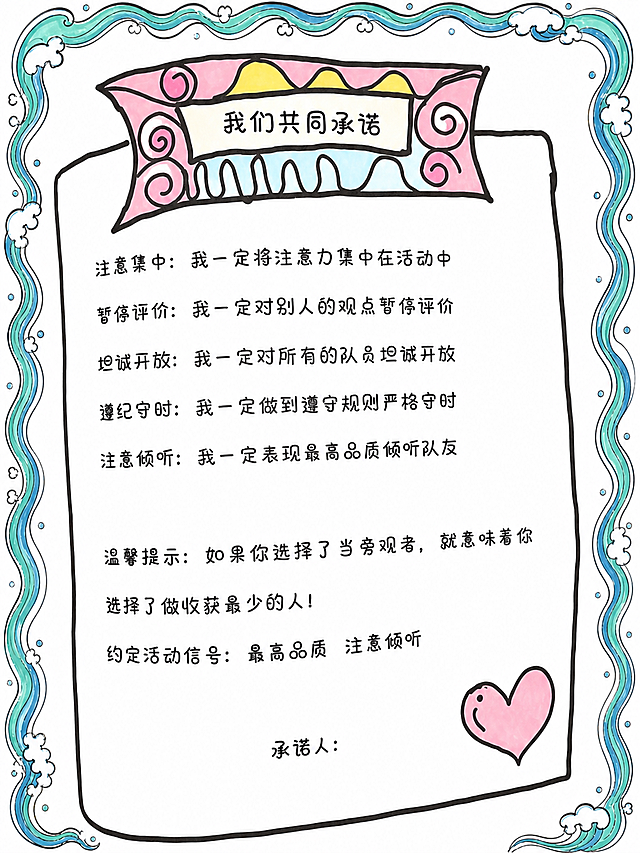 我们共同承诺
注意集中：我一定将注意力集中在活动中
暂停评价：我一定对别人的观点暂停评价
坦诚开放：我一定对所有的队员坦诚开放
遵纪守时：我一定做到遵守规则严格守时
注意倾听：我一定表现最高品质倾听队友
温馨提示：如果你选择了当旁观者，就意味着你
选择了做收获最少的人！
约定活动信号：最高品质 注意倾听
承诺人：